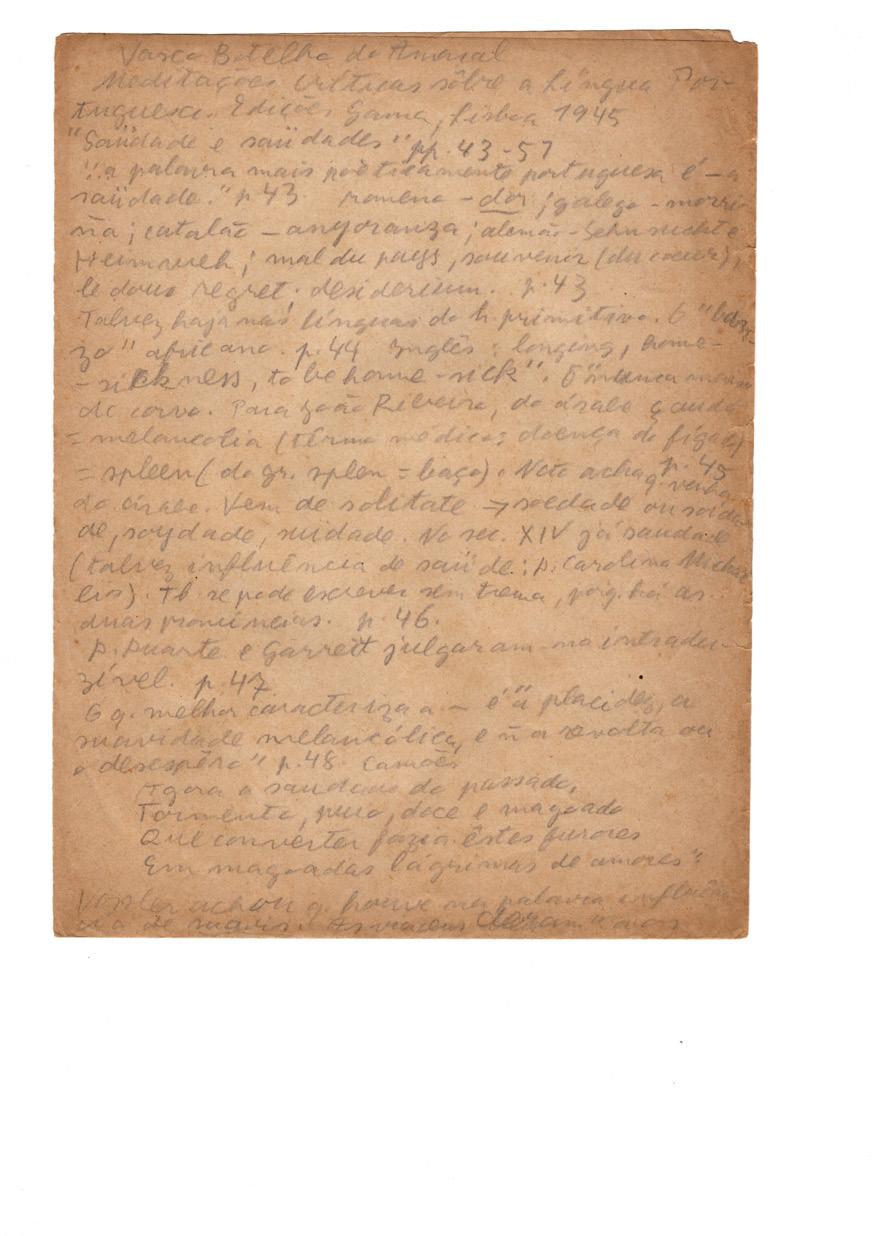 Vasco Botelho do Amaral
Meditações Críticas sôbre a Língua Por-
tuguesa. Edições Gama, Lisboa 1945
"Saüdade e saüdades" pp. 43-57
"a palavra mais poèticamente portuguesa é - a
saüdade." p 43 romeno - dor; galego - morri-
ña; catalão - anyoranza; alemão - Sehnsucht e
Heimweh; mal du pays, souvenir (du coeur),
le doux regret; desiderium. p. 43
Talvez haja nas línguas do h. primitivo. O "
zo" africano. p. 44 Inglês: longing, home-
-sickness, to be home-sick". O
do corvo. Para João Ribeiro, do árabe çauda
= melancolia (têrmo médico: doença do fígado)
= spleen (do gr. splen = baço). Noto acha q. venha p. 45
do árabe. Vem de solitate → soedade ou soida-
de, soydade, suidade. No sec. XIV já saudade
(talvez influência de saúde: D. Carolina Michae-
lis). Tb. se pode escrever sem trema, pois q. há as
duas pronúncias. p. 46.
D. Duarte e Garrett julgaram-na intradu-
zível. p. 47
O q. melhor caracteriza a - é "a placidez, a
suavidade melancólica, e ñ a revolta ou
o desespêro" p. 48. Camões
Agora a saudade do passado,
Tormento, puro, doce e magoado
Que converter fazia êstes furores
Em magoadas lágrimas de amores":
Vossler achou q. houve na palavra influên-
cia de suavis. As viagens deram "